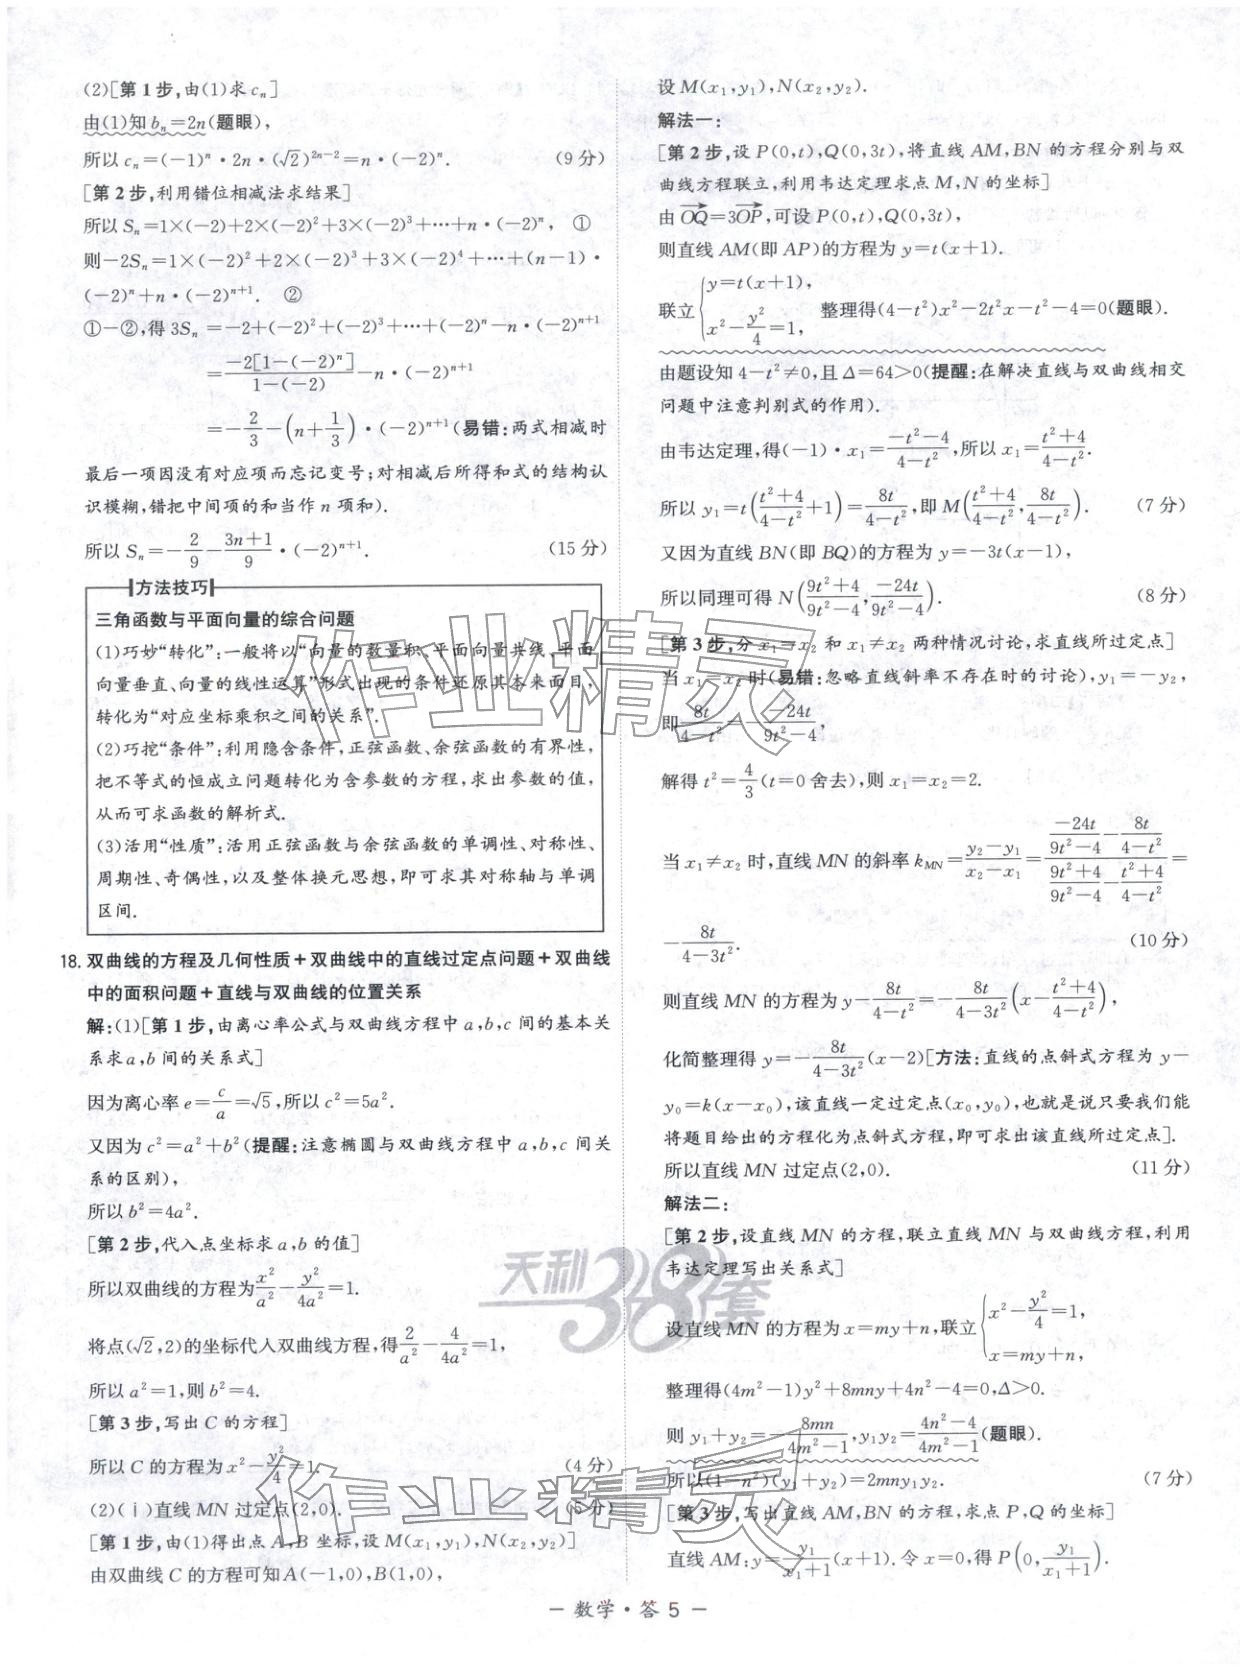 (2)[第1步,由(1)求cₙ]
由(1)知bₙ=2n(题眼),
所以cₙ=(-1)ⁿ·2n·(√2)²ⁿ⁻²=n·(-2)ⁿ. (9分)
[第2步,利用错位相减法求结果]
所以Sₙ=1×(-2)+2×(-2)²+3×(-2)³+…+n·(-2)ⁿ, ①
则-2Sₙ=1×(-2)²+2×(-2)³+3×(-2)⁴+…+(n-1)·
(-2)ⁿ+n·(-2)ⁿ⁺¹. ②
①-②,得3Sₙ=-2+(-2)²+(-2)³+…+(-2)ⁿ-n·(-2)ⁿ⁺¹
=\frac{-2[1-(-2)ⁿ]}{1-(-2)}-n·(-2)ⁿ⁺¹
=-\frac{2}{3}-(n+\frac{1}{3})·(-2)ⁿ⁺¹(易错:两式相减时
最后一项因没有对应项而忘记变号;对相减后所得和式的结构认
识模糊,错把中间项的和当作n项和).
所以Sₙ=-\frac{2}{9}-\frac{3n+1}{9}·(-2)ⁿ⁺¹. (15分)
方法技巧
三角函数与平面向量的综合问题
(1)巧妙“转化”:一般将以“向量的数量积、平面向量共线、平面
向量垂直、向量的线性运算”形式出现的条件还原其本来面目,
转化为“对应坐标乘积之间的关系”.
(2)巧挖“条件”:利用隐含条件,正弦函数、余弦函数的有界性,
把不等式的恒成立问题转化为含参数的方程,求出参数的值,
从而可求函数的解析式.
(3)活用“性质”:活用正弦函数与余弦函数的单调性、对称性、
周期性、奇偶性,以及整体换元思想,即可求其对称轴与单调
区间.
18.双曲线的方程及几何性质+双曲线中的直线过定点问题+双曲线
中的面积问题+直线与双曲线的位置关系
解:(1)[第1步,由离心率公式与双曲线方程中a,b,c间的基本关
系求a,b间的关系式]
因为离心率e=\frac{c}{a}=√5,所以c²=5a².
又因为c²=a²+b²(提醒:注意椭圆与双曲线方程中a,b,c间关
系的区别),
所以b²=4a².
[第2步,代入点坐标求a,b的值]
所以双曲线的方程为\frac{x²}{a²}-\frac{y²}{4a²}=1.
将点(√2,2)的坐标代入双曲线方程,得\frac{2}{a²}-\frac{4}{4a²}=1,
所以a²=1,则b²=4.
[第3步,写出C的方程]
所以C的方程为x²-\frac{y²}{4}=1. (4分)
(2)(ⅰ)直线MN过定点(2,0). (5分)
[第1步,由(1)得出点A,B坐标,设M(x₁,y₁),N(x₂,y₂)]
由双曲线C的方程可知A(-1,0),B(1,0),
设M(x₁,y₁),N(x₂,y₂).
解法一:
[第2步,设P(0,t),Q(0,3t),将直线AM,BN的方程分别与双
曲线方程联立,利用韦达定理求点M,N的坐标]
由\overrightarrow{OQ}=3\overrightarrow{OP},可设P(0,t),Q(0,3t),
则直线AM(即AP)的方程为y=t(x+1).
联立{y=t(x+1), x²-\frac{y²}{4}=1, 整理得(4-t²)x²-2t²x-t²-4=0(题眼).
由题设知4-t²≠0,且Δ=64>0(提醒:在解决直线与双曲线相交
问题中注意判别式的作用).
由韦达定理,得(-1)·x₁=\frac{-t²-4}{4-t²},所以x₁=\frac{t²+4}{4-t²}.
所以y₁=t(\frac{t²+4}{4-t²}+1)=\frac{8t}{4-t²},即M(\frac{t²+4}{4-t²},\frac{8t}{4-t²}). (7分)
又因为直线BN(即BQ)的方程为y=-3t(x-1),
所以同理可得N(\frac{9t²+4}{9t²-4},\frac{-24t}{9t²-4}). (8分)
[第3步,分x₁=x₂和x₁≠x₂两种情况讨论,求直线所过定点]
当x₁=x₂时(易错:忽略直线斜率不存在时的讨论),y₁=-y₂,
即\frac{8t}{4-t²}=-\frac{-24t}{9t²-4},
解得t²=\frac{4}{3}(t=0舍去),则x₁=x₂=2.
当x₁≠x₂时,直线MN的斜率k_{MN}=\frac{y₂-y₁}{x₂-x₁}=\frac{\frac{-24t}{9t²-4}-\frac{8t}{4-t²}}{\frac{9t²+4}{9t²-4}-\frac{t²+4}{4-t²}}=
-\frac{8t}{4-3t²}. (10分)
则直线MN的方程为y-\frac{8t}{4-t²}=-\frac{8t}{4-3t²}(x-\frac{t²+4}{4-t²}),
化简整理得y=-\frac{8t}{4-3t²}(x-2)[方法:直线的点斜式方程为y-
y₀=k(x-x₀),该直线一定过定点(x₀,y₀),也就是说只要我们能
将题目给出的方程化为点斜式方程,即可求出该直线所过定点].
所以直线MN过定点(2,0). (11分)
解法二:
[第2步,设直线MN的方程,联立直线MN与双曲线方程,利用
韦达定理写出关系式]
设直线MN的方程为x=my+n,联立{x²-\frac{y²}{4}=1, x=my+n,
整理得(4m²-1)y²+8mny+4n²-4=0,Δ>0.
则y₁+y₂=-\frac{8mn}{4m²-1},y₁y₂=\frac{4n²-4}{4m²-1}(题眼).
所以(1-n²)(y₁+y₂)=2mny₁y₂. (7分)
[第3步,写出直线AM,BN的方程,求点P,Q的坐标]
直线AM:y=\frac{y₁}{x₁+1}(x+1).令x=0,得P(0,\frac{y₁}{x₁+1}).
作业精灵
天利38套
作业精灵
— 数学·答 5 —